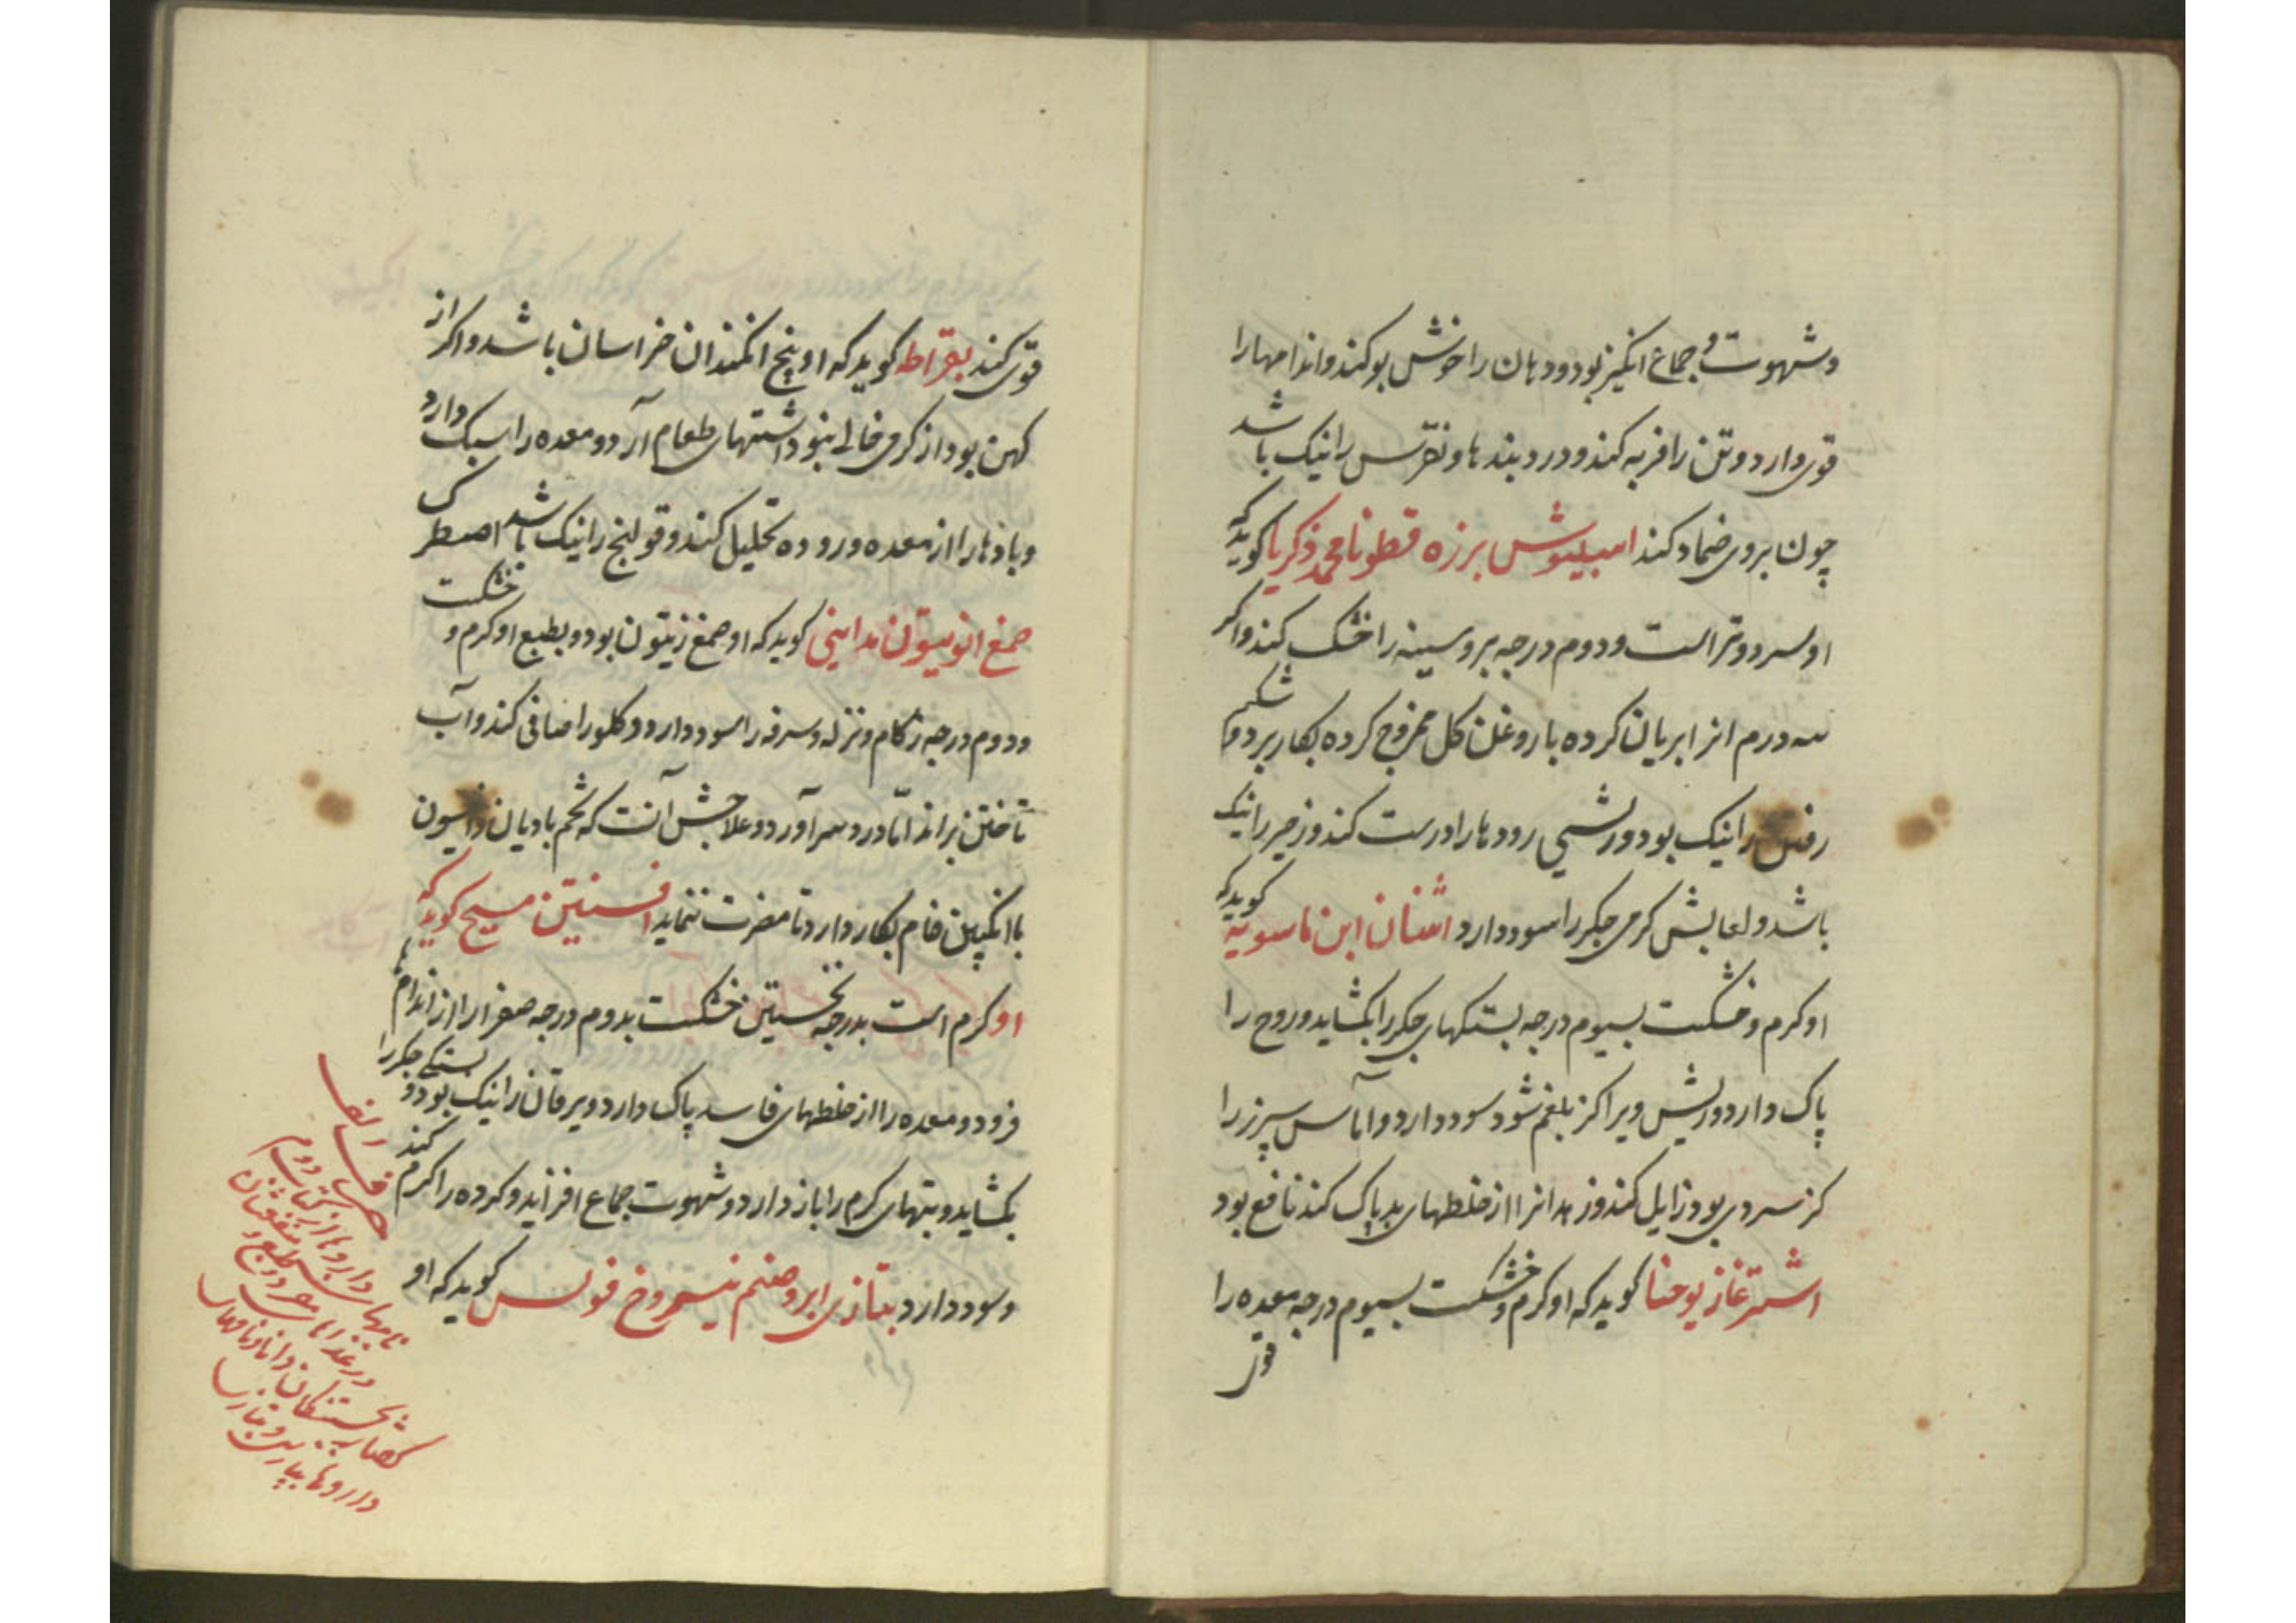 وشهوت و جماع انکیز بود و دهان را خوش بو کند و اندامها را
قوی دارد و تن را فربه کند و درد بندها و نقرس را نیک باشد
چون بر وی ضماد کند اسبیوش برزه قطونا محمد ذکریا کوید که
او سرد و تر است و دوم درجه بر و سینه را خشک کند و اکر
سه درم از ابریان کرده با روغن کل ممزوج کرده بکار برد و شکم
رفتن را نیک بود و ریشی رودها را درست کند و زحیر را نیک
باشد و لعابش کرمی جکر را سود دارد اشنان ابن ماسویه کوید که
او کرم و خشکست بسیوم درجه بستکهای جکر را بکشاید و روح را
پاک دارد و ریش ویرا کز بلغم شود سود دارد و آماس سپرز را
کز سردی بود زایل کند و زهدانرا از خلطهای بد پاک کند نافع بود
اشترغاز یوحنا کوید که او کرم و خشکست بسیوم درجه معده را
قوی
قوی کند بقراط کوید که او بیخ انکدان خراسان باشد و اکر از
کهن بود از کرمی خالی نبود و اشتهای طعام آرد و معده را سبک دارد
و بادها را از معده و روده تحلیل کند و قولنج را نیک باشد اصطرک
صمغ انوبیتون مداینی کوید که او صمغ زیتون بود و بطبع او کرم و خشکست
و دوم درجه زکام و نزله و سرفه را سود دارد و کلو را صافی کند و آب
تاختن براند امّا درد سر آورد و علاجش آنست که تخم بادیان و انیسون
با انکبین خام بکار دارد تا مضرت ننماید افسنتین مسیح کوید که
او کرم است بدرجه نخستین خشکست بدوم درجه صفرا را از اندام
فرود و معده را از خلطهای فاسد پاک دارد و یرقان را نیک بود و بستکی جکر را
بکشاید و تبهای کرم را باز دارد و شهوت جماع افزاید و کرده را کرم کند
و سود دارد بتازی ابرو صنم یبروح فولس کوید که او
حرف الف
نامهای داروها از کتاب دوم